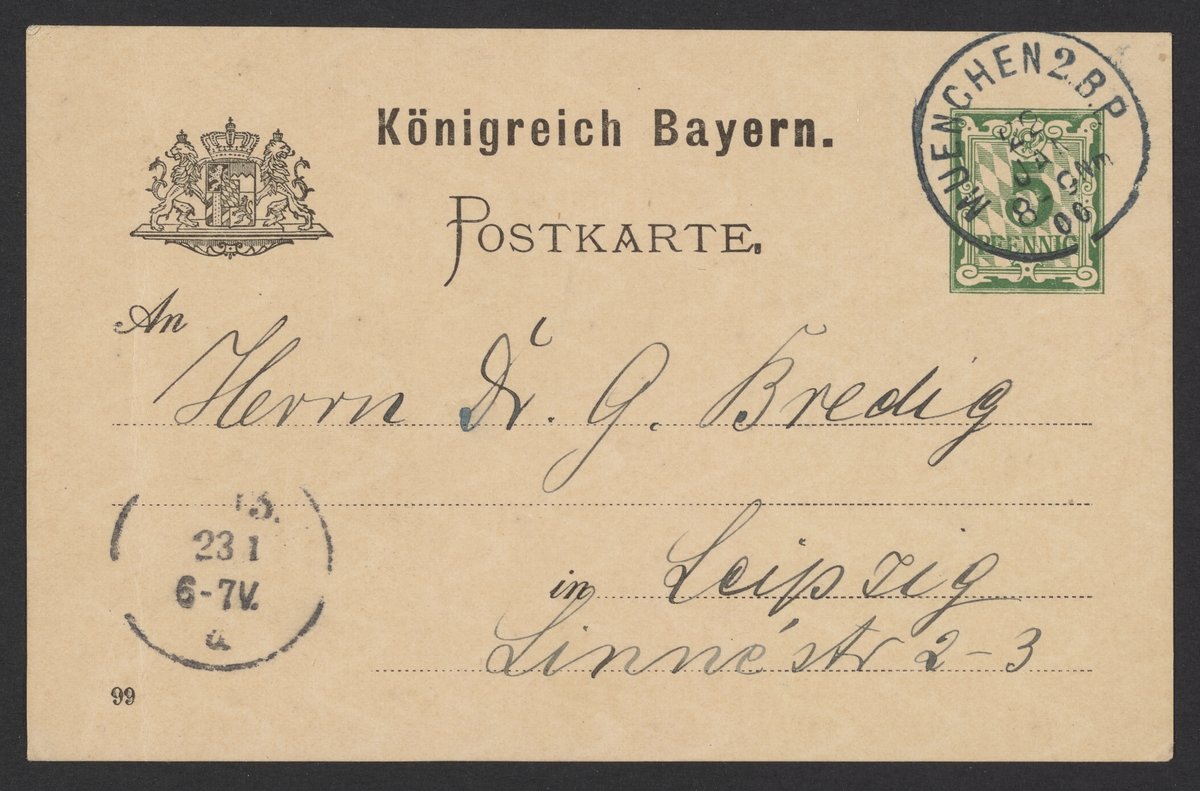 Königreich Bayern.
POSTKARTE.
MUENCHEN 2.B.P.
5
PFENNIG
An
Herrn Dr. G. Bredig
in Leipzig
Linnéstr 2-3
23 1
6-7V.
a
99